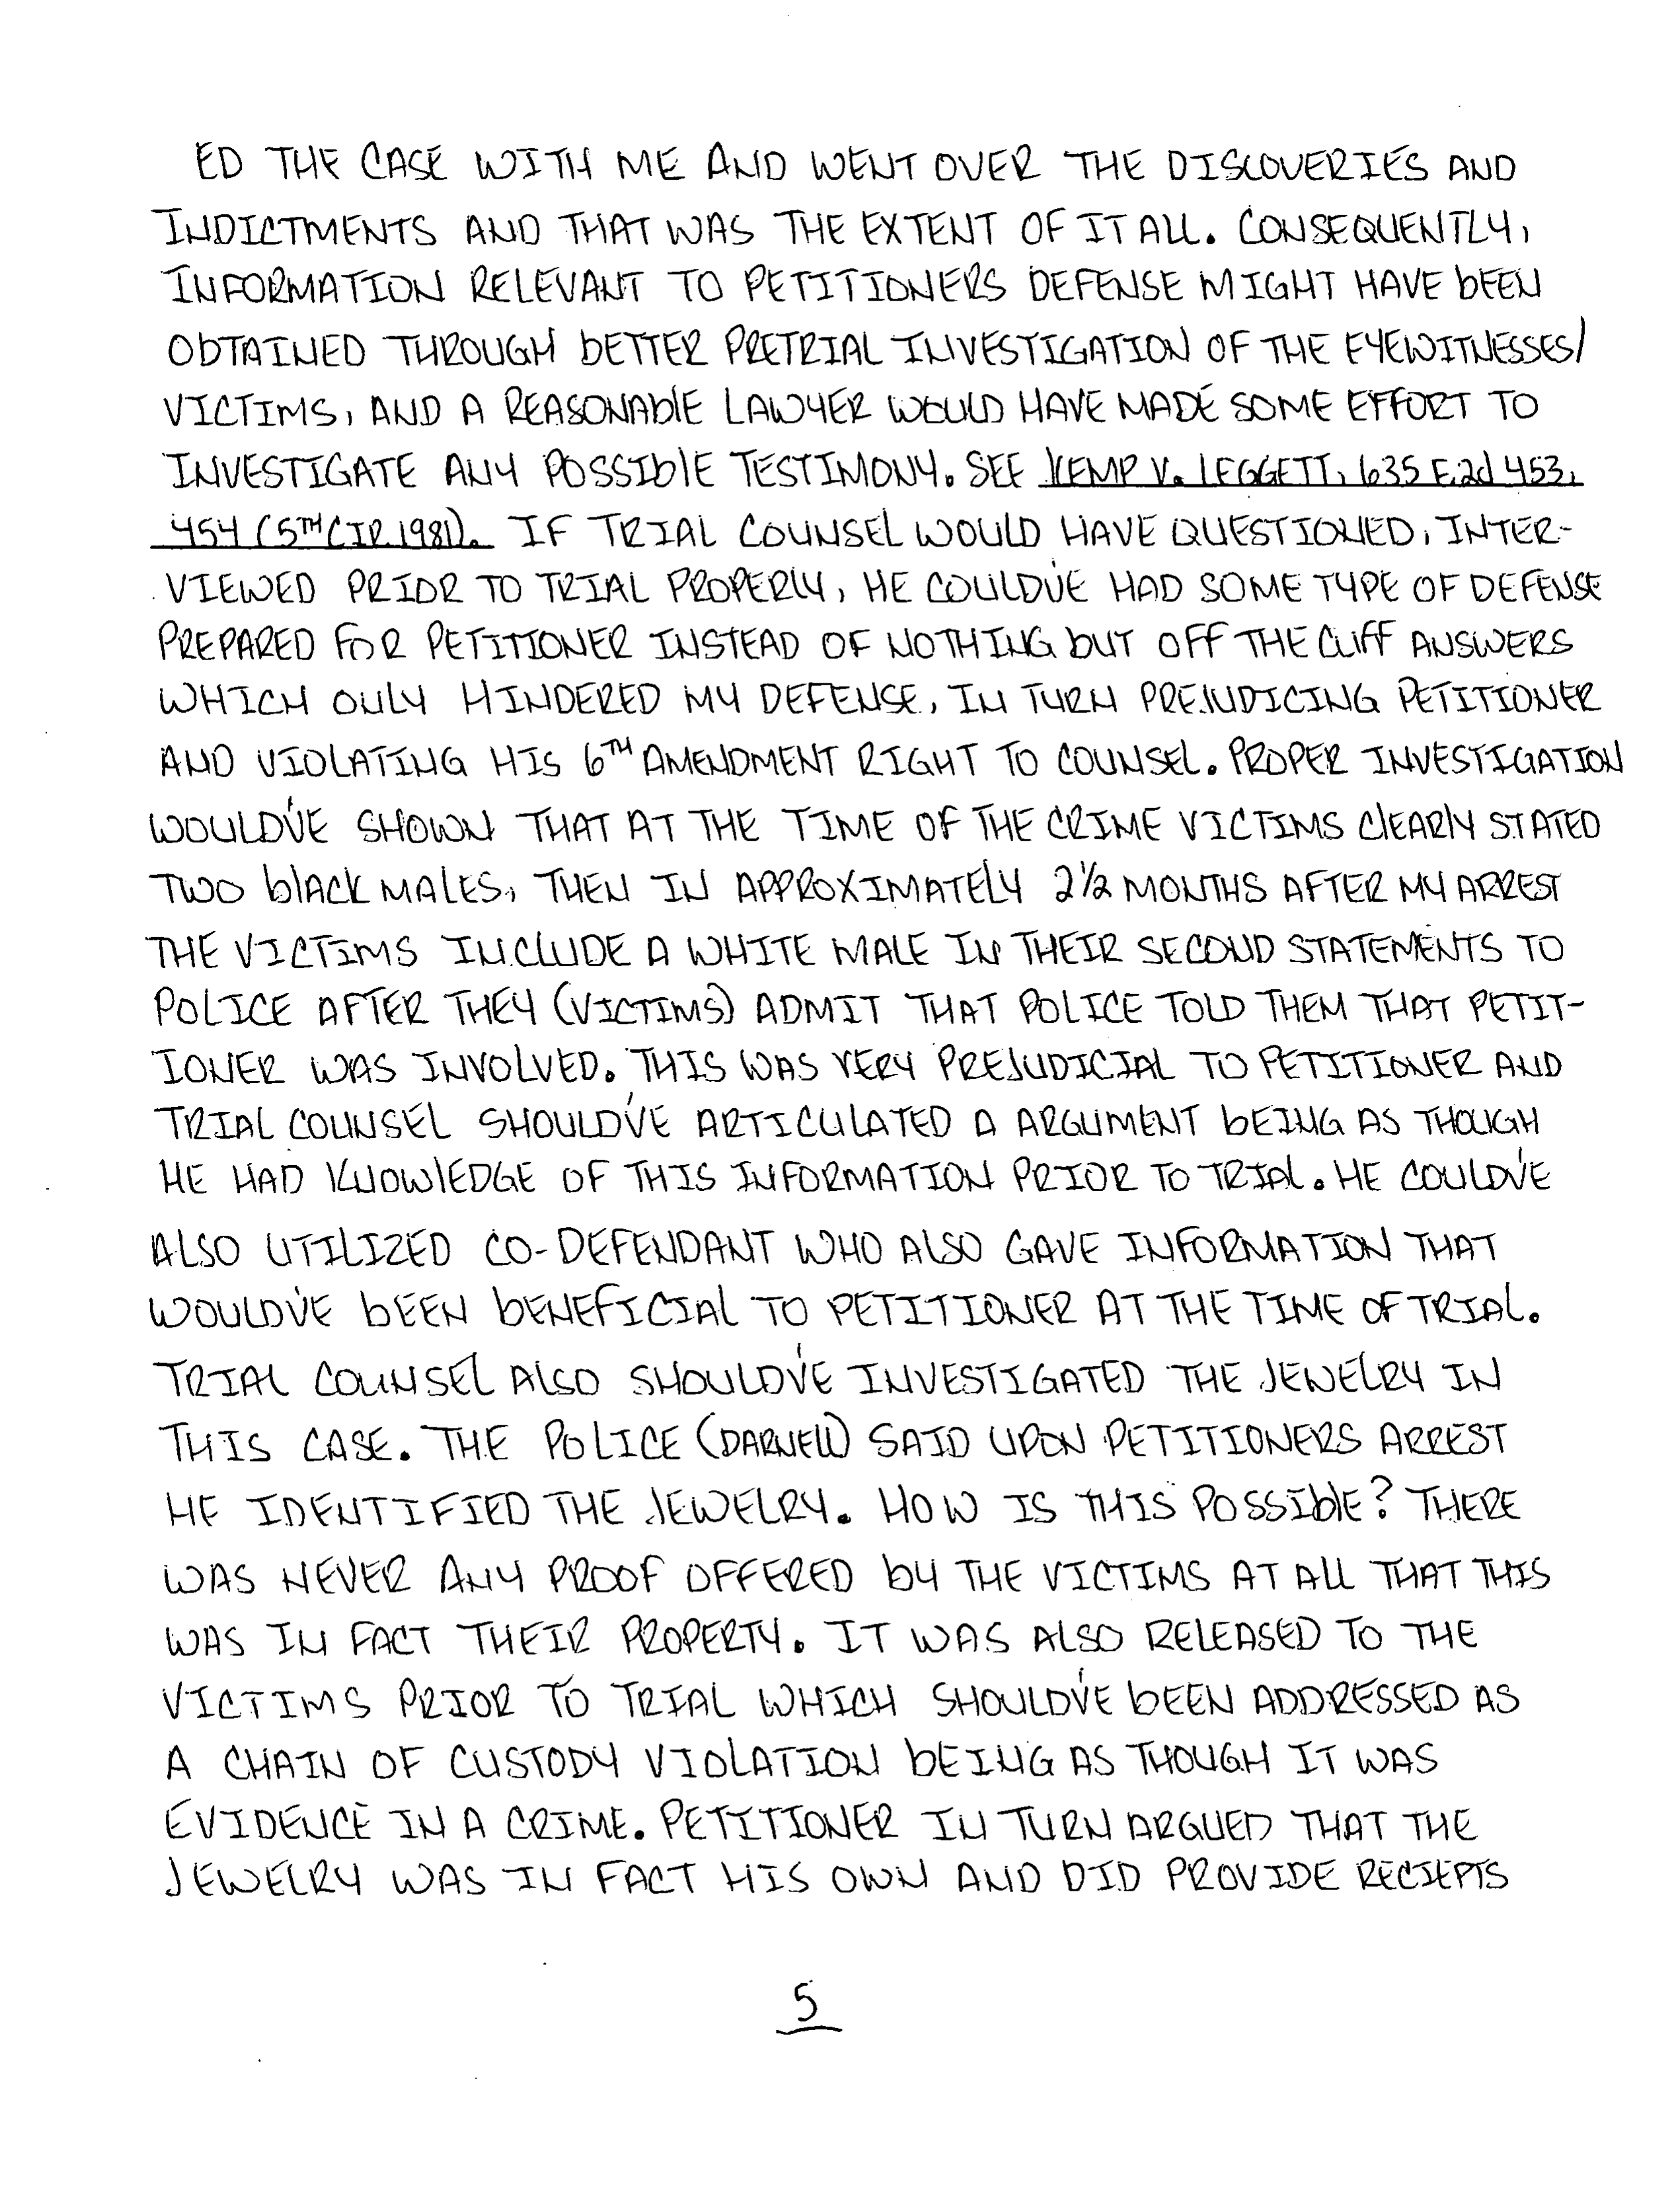 ED THE CASE WITH ME AND WENT OVER THE DISCOVERIES AND
INDICTMENTS AND THAT WAS THE EXTENT OF IT ALL. CONSEQUENTLY,
INFORMATION RELEVANT TO PETITIONERS DEFENSE MIGHT HAVE bEEN
ObTAINED THROUGH bETTER PRETRIAL INVESTIGATION OF THE EYEWITNESSES/
VICTIMS, AND A REASONAblE LAWYER WOULD HAVE MADE SOME EFFORT TO
INVESTIGATE ANY POSSIblE TESTIMONY. SEE KEMP V. LEGGETT, 635 F.2d 453,
454 (5TH CIR. 1981). IF TRIAL COUNSEL WOULD HAVE QUESTIONED, INTER-
VIEWED PRIOR TO TRIAL PROPERLY, HE COULDV'E HAD SOME TYPE OF DEFENSE
PREPARED FOR PETITIONER INSTEAD OF NOTHING bUT OFF THE CLIFF ANSWERS
WHICH ONLY HINDERED MY DEFENSE, IN TURN PREJUDICING PETITIONER
AND VIOLATING HIS 6TH AMENDMENT RIGHT TO COUNSEL. PROPER INVESTIGATION
WOULDV'E SHOWN THAT AT THE TIME OF THE CRIME VICTIMS CLEARLY STATED
TWO blACK MALES, THEN IN APPROXIMATELY 2½ MONTHS AFTER MY ARREST
THE VICTIMS INCLUDE A WHITE MALE IN THEIR SECOND STATEMENTS TO
POLICE AFTER THEY (VICTIMS) ADMIT THAT POLICE TOLD THEM THAT PETIT-
IONER WAS INVOLVED. THIS WAS VERY PREJUDICIAL TO PETITIONER AND
TRIAL COUNSEL SHOULDV'E ARTICULATED A ARGUMENT bEING AS THOUGH
HE HAD KNOWLEDGE OF THIS INFORMATION PRIOR TO TRIAL. HE COULDV'E
ALSO UTILIZED CO-DEFENDANT WHO ALSO GAVE INFORMATION THAT
WOULDV'E bEEN bENEFICIAL TO PETITIONER AT THE TIME OF TRIAL.
TRIAL COUNSEL ALSO SHOULDV'E INVESTIGATED THE JEWELRY IN
THIS CASE. THE POLICE (DARNELL) SAID UPON PETITIONERS ARREST
HE IDENTIFIED THE JEWELRY. HOW IS THIS POSSIblE? THERE
WAS NEVER ANY PROOF OFFERED bY THE VICTIMS AT ALL THAT THIS
WAS IN FACT THEIR PROPERTY. IT WAS ALSO RELEASED TO THE
VICTIMS PRIOR TO TRIAL WHICH SHOULDV'E bEEN ADDRESSED AS
A CHAIN OF CUSTODY VIOLATION bEING AS THOUGH IT WAS
EVIDENCE IN A CRIME. PETITIONER IN TURN ARGUED THAT THE
JEWELRY WAS IN FACT HIS OWN AND DID PROVIDE RECIEPTS
5